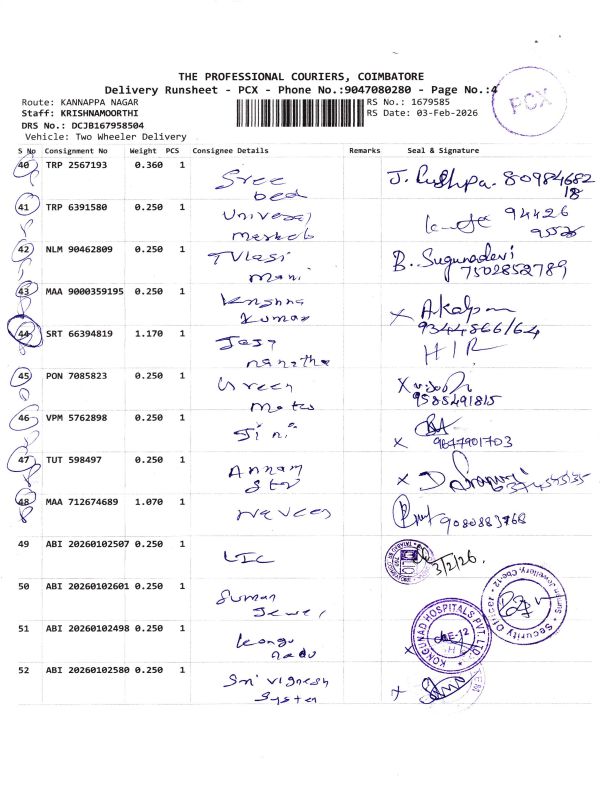 THE PROFESSIONAL COURIERS, COIMBATORE
Delivery Runsheet - PCX - Phone No.:9047080280 - Page No.:4
PCX
Route: KANNAPPA NAGAR
RS No.: 1679585
Staff: KRISHNAMOORTHI
RS Date: 03-Feb-2026
DRS No.: DCJB167958504
Vehicle: Two Wheeler Delivery
S No Consignment No Weight PCS Consignee Details Remarks Seal & Signature
40 TRP 2567193 0.360 1 Sree bed J. Pushpa. 80984682
18
41 TRP 6391580 0.250 1 94426
42 NLM 90462809 0.250 1 Tvlasi mani B. Sugunadevi
7502852789
43 MAA 9000359195 0.250 1 Krishna Kumar X A Kalpan
9344866164
44 SRT 66394819 1.170 1 H/R
45 PON 7085823 0.250 1 Green X
9588491815
46 VPM 5762898 0.250 1 Jini X 9677901703
47 TUT 598497 0.250 1 Annam X
48 MAA 712674689 1.070 1 Naveen 9080883768
49 ABI 20260102507 0.250 1 LIC 3/2/26.
50 ABI 20260102601 0.250 1 Suman Jewel
Security Officer
51 ABI 20260102498 0.250 1 Kongu nadu
KONGUNAD HOSPITALS PVT. LTD.
CBE-12
52 ABI 20260102580 0.250 1 Sri Vignesh System X